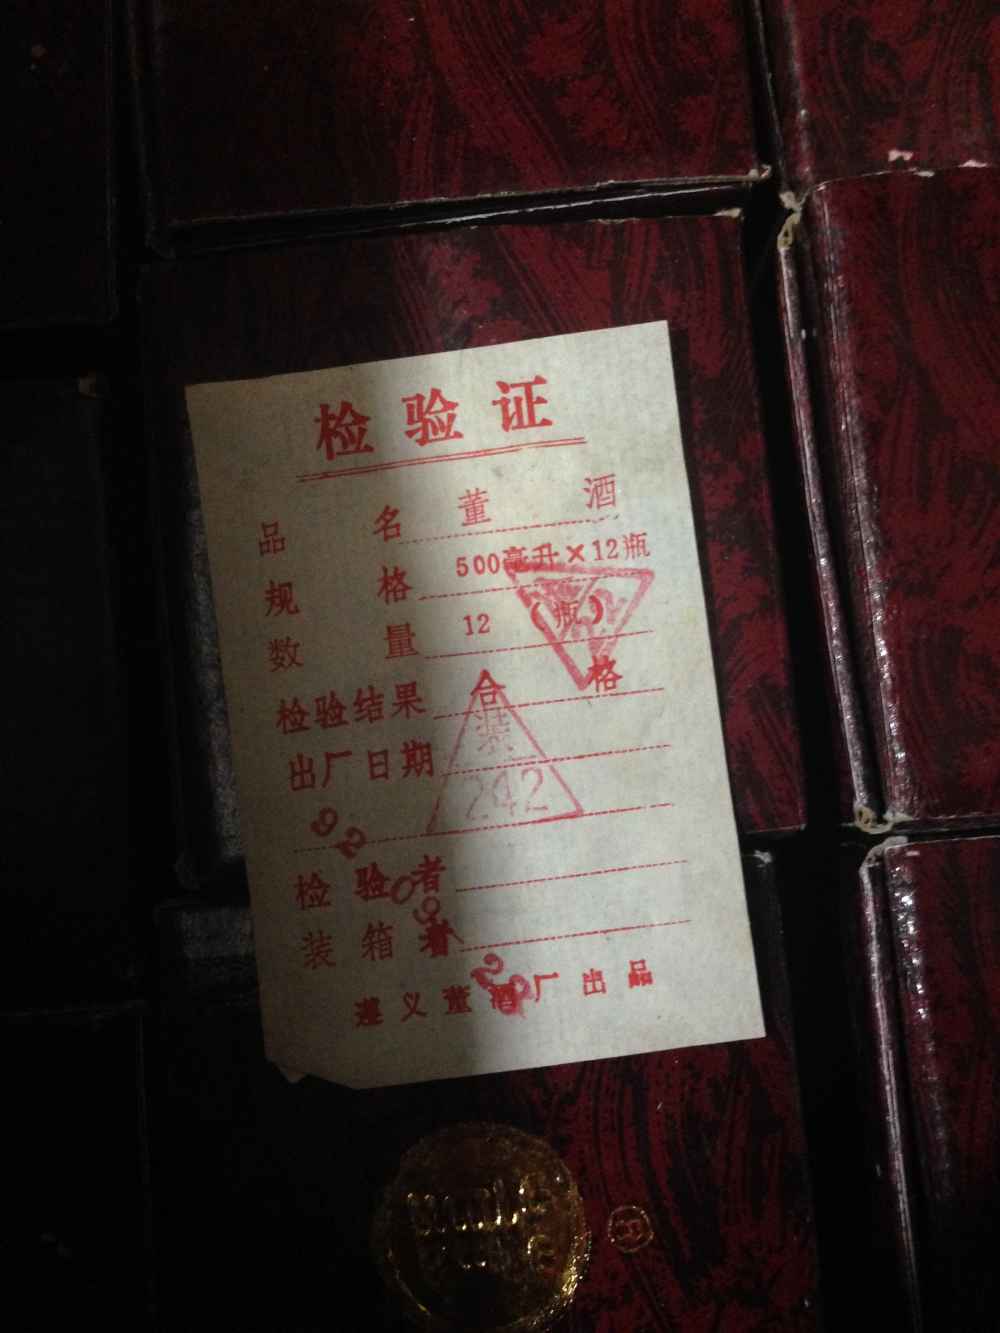 检验证
品名 董酒
规格 500毫升×12瓶
数量 12 (瓶)
检验结果 合格
装
242
出厂日期
92 09 22
检验者
装箱者
遵义董酒厂出品
®